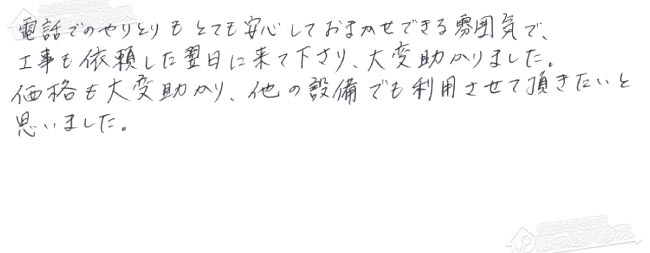 電話でのやりとりもとても安心しておまかせできる雰囲気で、
工事も依頼した翌日に来て下さり、大変助かりました。
価格も大変助かり、他の設備でも利用させて頂きたいと
思いました。